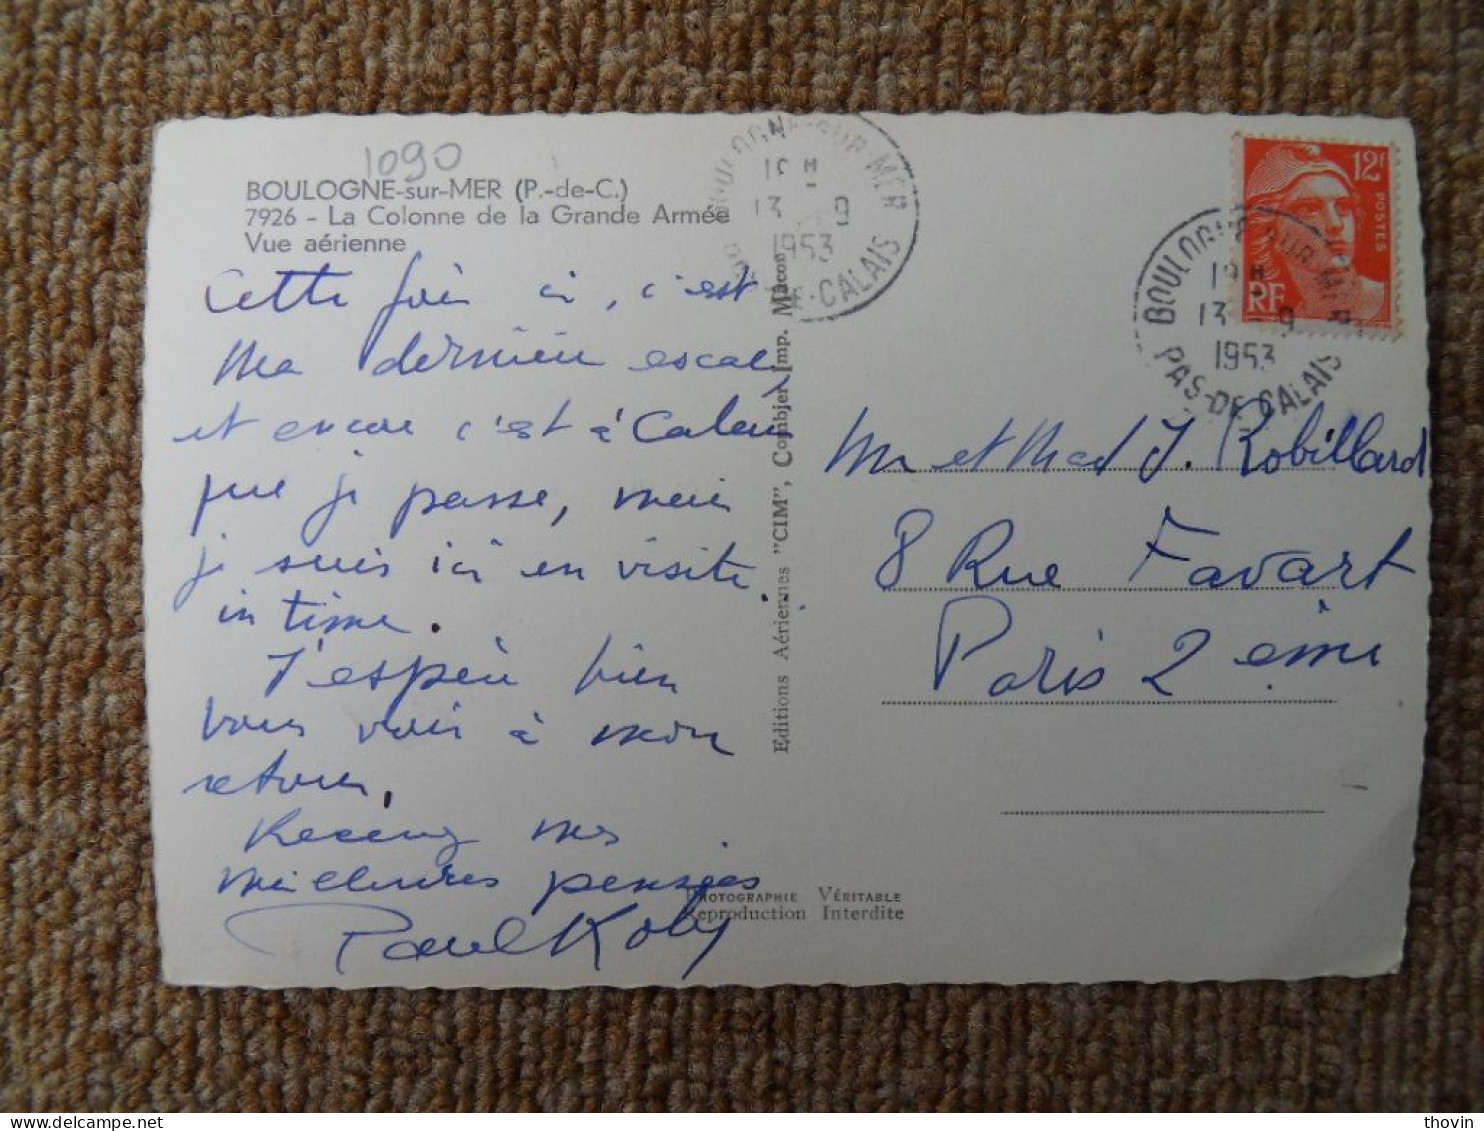 1090
BOULOGNE-sur-MER (P.-de-C.)
7926 - La Colonne de la Grande Armée
Vue aérienne
Cette fois ci, c'est
ma dernière escale,
et encore c'est à Calais
que je passe, mais
je suis ici en visite
intime.
J'espère bien
vous voir à mon
retour.
Recevez mes
meilleures pensées
Paul Koby
Editions Aériennes "CIM", Combier Imp. Macon
PHOTOGRAPHIE VÉRITABLE
Reproduction Interdite
BOULOGNE-SUR-MER
13 - 9
1953
PAS-DE-CALAIS
12f
POSTES
RF
BOULOGNE-SUR-MER
13 - 9
1953
PAS-DE-CALAIS
Mr et Mad J. Robillard
8 Rue Favart
Paris 2 ème
thovin